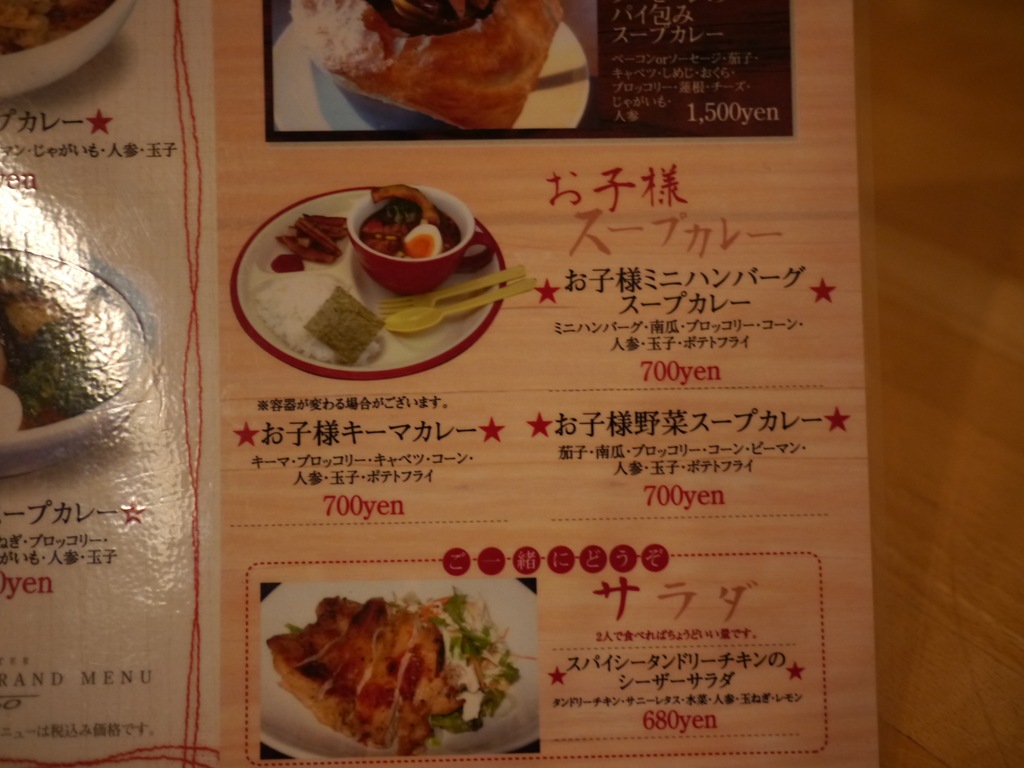 プカレー★
マン・じゃがいも・人参・玉子
yen
ープカレー☆
ねぎ・ブロッコリー・
がいも・人参・玉子
0yen
RAND MENU
ニューは税込み価格です。
パイ包み
スープカレー
ベーコンorソーセージ・茄子・
キャベツ・しめじ・おくら・
ブロッコリー・蓮根・チーズ・
じゃがいも・
人参 1,500yen
お子様
スープカレー
★お子様ミニハンバーグ
スープカレー★
ミニハンバーグ・南瓜・ブロッコリー・コーン・
人参・玉子・ポテトフライ
700yen
※容器が変わる場合がございます。
★お子様キーマカレー★
キーマ・ブロッコリー・キャベツ・コーン・
人参・玉子・ポテトフライ
700yen
★お子様野菜スープカレー★
茄子・南瓜・ブロッコリー・コーン・ピーマン・
人参・玉子・ポテトフライ
700yen
ご一緒にどうぞ
サラダ
2人で食べればちょうどいい量です。
★スパイシータンドリーチキンの
シーザーサラダ★
タンドリーチキン・サニーレタス・水菜・人参・玉ねぎ・レモン
680yen